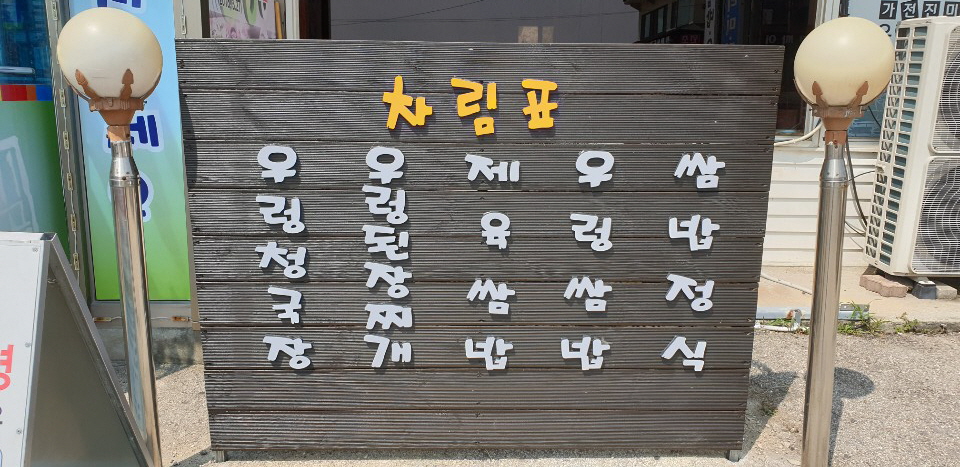 차림표
쌈밥정식
우렁쌈밥
제육쌈밥
우렁된장찌개
우렁청국장
가전진미